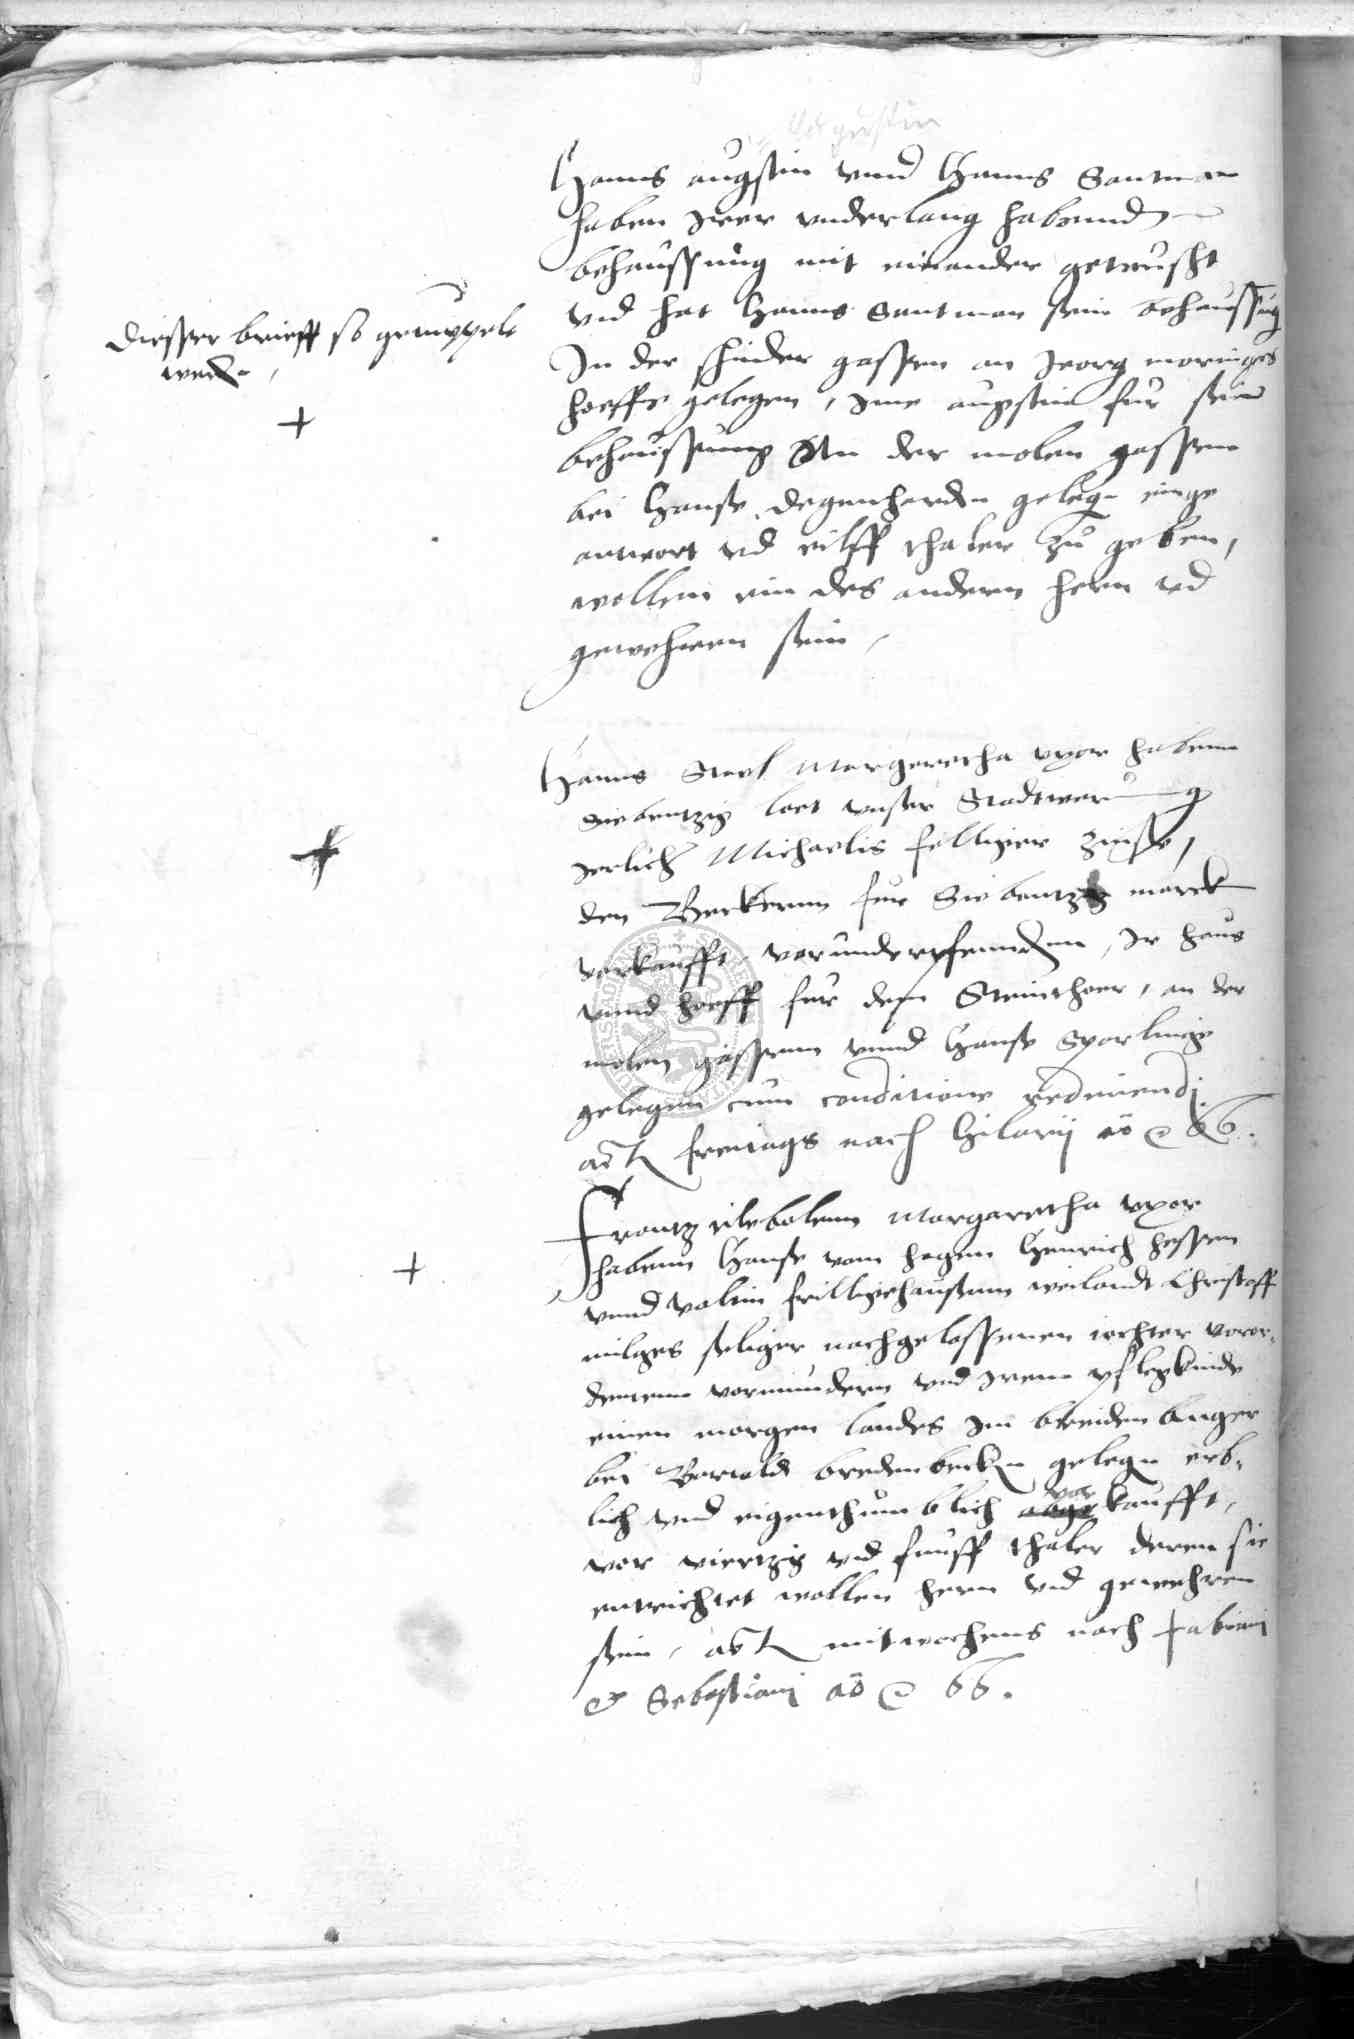 Hanns augstin vnnd Hanns Santman
haben Irer vnderlang habennd
behaussung mit einander getauscht
vnd hat Hanns Santman sein behaussung
In der schinder gassen an Jeorg moringes
hoeffe gelegen, Ime augstin fur sein
behaussung An der molen gassenn
bei Hanse degenharden gelegen einge
antwort vnd eilff thaler zu geben,
wollen ein des andern hern vnd
gewehren sein,
Dieser brieff so
werden
+
Hanns Margeretha vxor habenn
Siebentzig loet vnser Stadtwerung
Jerlich Michaelis felliger zinse,
den Beckernn fur Siebentzig marck
verkaufft, vorunderpfenndenn, Ir haus
vnnd hoeff fur dem Steinthoer, an der
molen gassenn vnnd Hanse Sporlinge
gelegen cum conditione redimendi.
act freitags nach Hilarij ao 66.
+
Frantz Margaretha vxor
habenn Hanse vom hagen Henrich hessen
vnnd valtin weilandt Christoff
milges seliger nachgelassenen tochter voror-
dentenn vormundern vnd Irem pflegkinde
einen morgen landes Im breiden anger
bei Bertoldt bredenbecken gelegen erb-
lich vnd eigenthumblich vorkaufft,
vor viertzig vnd funff thaler deren sie
entrichtet wollen hern vnd gewehren
sein, act mitwochens nach Fabiani
et Sebastiani ao 66.
+